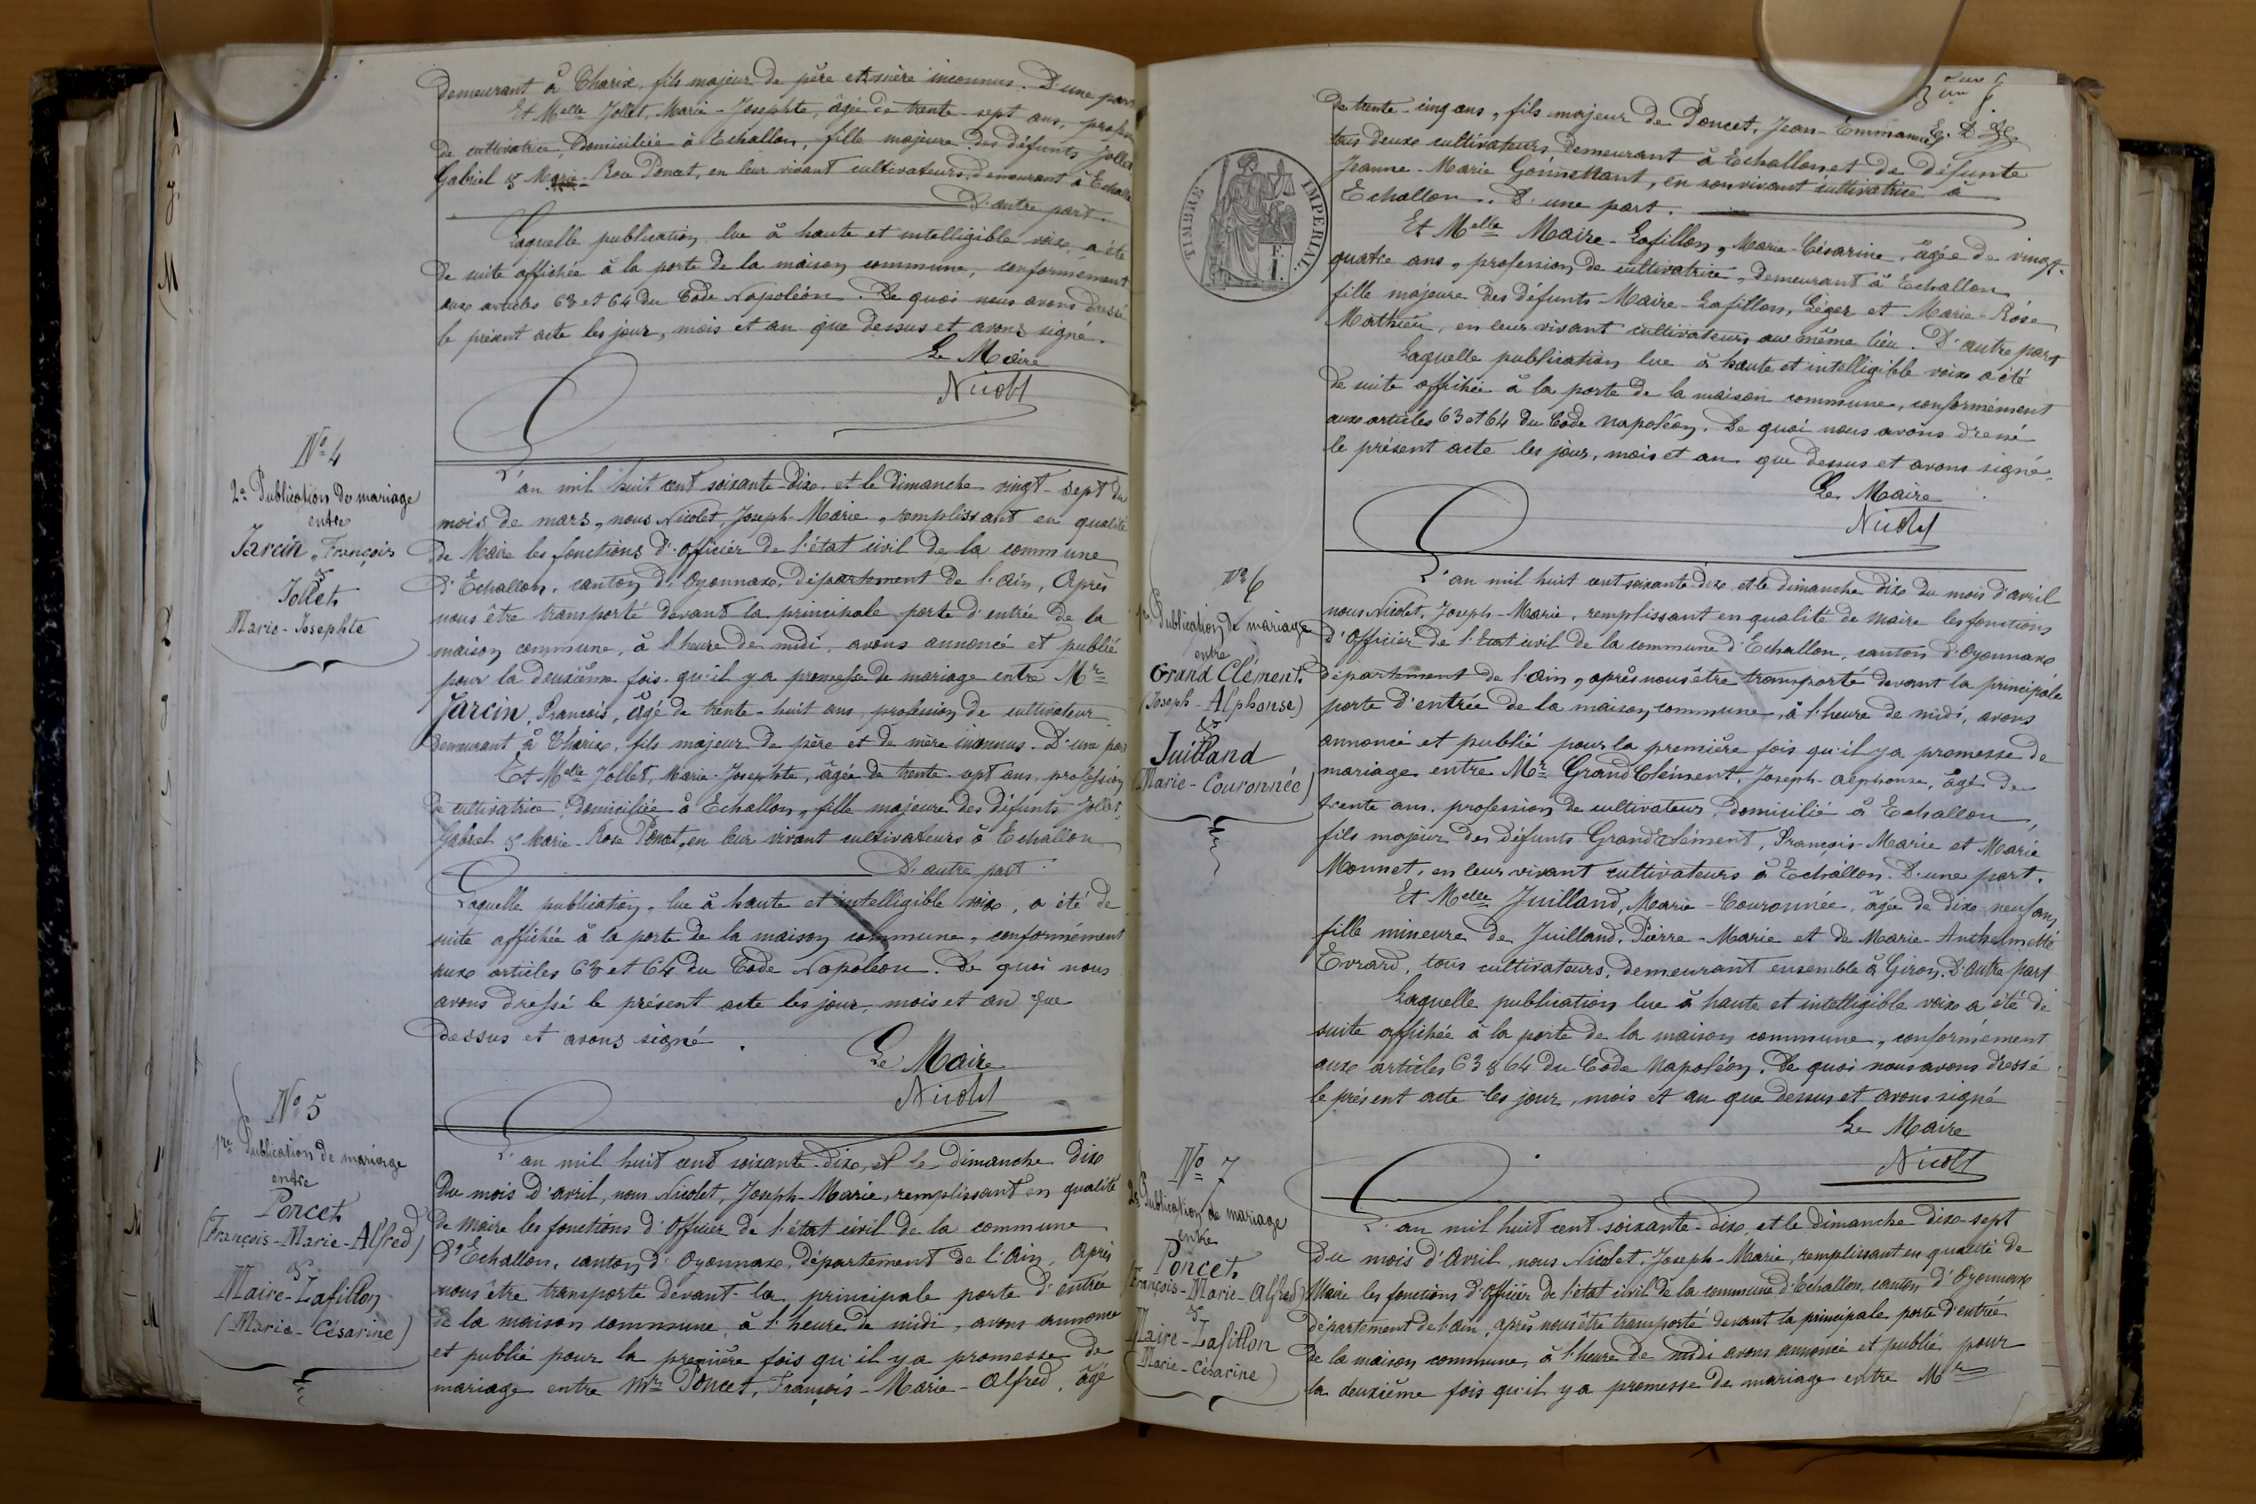 demeurant à Charix, fils majeur de père et mère inconnus. D'une part
Et Melle Jollet, Marie-Josephte, âgée de trente-sept ans, profession
de cultivatrice, domiciliée à Echallon, fille majeure des défunts Jollet
Gabriel & Marie-Rose Poncet, en leur vivant cultivateurs, demeurant à Echallon
D'autre part.
Laquelle publication, lue à haute et intelligible voix, a été
de suite affichée à la porte de la maison commune, conformément
aux articles 63 et 64 du Code Napoléon. De quoi nous avons dressé
le présent acte les jour, mois et an que dessus et avons signé.
Le Maire
Nicolet
No 4
2e Publication de mariage
entre
Jarcin, François
&
Jollet
Marie-Josephte
L'an mil huit cent soixante-dix, et le dimanche vingt-sept du
mois de mars, nous Nicolet, Joseph-Marie, remplissant en qualité
de Maire les fonctions d'officier de l'état civil de la commune
d'Echallon, canton d'Oyonnax, département de l'ain, Après
nous être transporté devant la principale porte d'entrée de la
maison commune, à l'heure de midi, avons annoncé et publié
pour la deuxième fois qu'il y a promesse de mariage entre Mr
Jarcin, François, âgé de trente-huit ans, profession de cultivateur
demeurant à Charix, fils majeur de père et de mère inconnus. D'une part
Et Melle Jollet, Marie-Josephte, âgée de trente-sept ans, profession
de cultivatrice, domiciliée à Echallon, fille majeure des défunts Jollet,
Gabriel & Marie-Rose Poncet, en leur vivant cultivateurs à Echallon
D'autre part.
Laquelle publication, lue à haute et intelligible voix, a été de
suite affichée à la porte de la maison commune, conformément
aux articles 63 et 64 du Code Napoléon. De quoi nous
avons dressé le présent acte les jour, mois et an que
dessus et avons signé.
Le Maire
Nicolet
No 5
1re Publication de mariage
entre
Poncet
(François-Marie-Alfred)
&
Maire-Lafillon
(Marie-Césarine)
L'an mil huit cent soixante-dix, et le dimanche dix
du mois d'avril, nous Nicolet, Joseph-Marie, remplissant en qualité
de Maire les fonctions d'officier de l'état civil de la commune
d'Echallon, canton d'Oyonnax, département de l'Ain, Après
nous être transporté devant la principale porte d'entrée
de la maison commune, à l'heure de midi, avons annoncé
et publié pour la première fois qu'il y a promesse de
mariage entre Mr Poncet, François-Marie-Alfred, âgé
de trente-cinq ans, fils majeur de Poncet, Jean-Emmanuel,
tous deux cultivateurs, demeurant à Echallon et de défunte
Jeanne-Marie Gonnettant, en son vivant cultivatrice à
Echallon. D'une part.
TIMBRE IMPÉRIAL
Et Melle Maire-Lafillon, Marie-Césarine, âgée de vingt-
quatre ans, profession de cultivatrice, demeurant à Echallon
fille majeure des défunts Maire-Lafillon, Léger et Marie-Rose
Mathieu, en leur vivant cultivateurs au même lieu. D'autre part
Laquelle publication, lue à haute et intelligible voix a été
de suite affichée à la porte de la maison commune, conformément
aux articles 63 et 64 du Code Napoléon. De quoi nous avons dressé
le présent acte les jour, mois et an que dessus et avons signé.
Le Maire
Nicolet
No 6
1re Publication de mariage
entre
Grand Clément
(Joseph-Alphonse)
&
Juilland
(Marie-Couronnée)
L'an mil huit cent soixante-dix et le dimanche dix du mois d'avril
nous Nicolet, Joseph-Marie, remplissant en qualité de maire les fonctions
d'Officier de l'Etat civil de la commune d'Echallon, canton d'Oyonnax
département de l'ain, après nous être transporté devant la principale
porte d'entrée de la maison commune, à l'heure de midi, avons
annoncé et publié pour la première fois qu'il y a promesse de
mariage entre Mr Grand Clément, Joseph-alphonse, âgé de
trente ans, profession de cultivateur, domicilié à Echallon,
fils majeur des défunts Grand Clément, François-Marie et Marie
Monnet, en leur vivant cultivateurs à Echallon. D'une part.
Et Melle Juilland, Marie-Couronnée, âgée de dix-neuf ans,
fille mineure de Juilland, Pierre-Marie et de Marie-Anthelmette
Evrard, tous cultivateurs, demeurant ensemble à Giron, D'autre part
Laquelle publication lue à haute et intelligible voix a été de
suite affichée à la porte de la maison commune, conformément
aux articles 63 & 64 du Code Napoléon. De quoi nous avons dressé
le présent acte les jour, mois et an que dessus et avons signé
Le Maire
Nicolet
No 7
2e Publication de mariage
entre
Poncet
(François-Marie-Alfred)
&
Maire-Lafillon
(Marie-Césarine)
L'an mil huit cent soixante-dix et le dimanche dix-sept
du mois d'Avril, nous Nicolet, Joseph-Marie, remplissant en qualité de
Maire les fonctions d'officier de l'état civil de la commune d'Echallon, canton d'Oyonnax
département de l'ain, après nous être transporté devant la principale porte d'entrée
de la maison commune, à l'heure de midi avons annoncé et publié pour
la deuxième fois qu'il y a promesse de mariage entre Mr